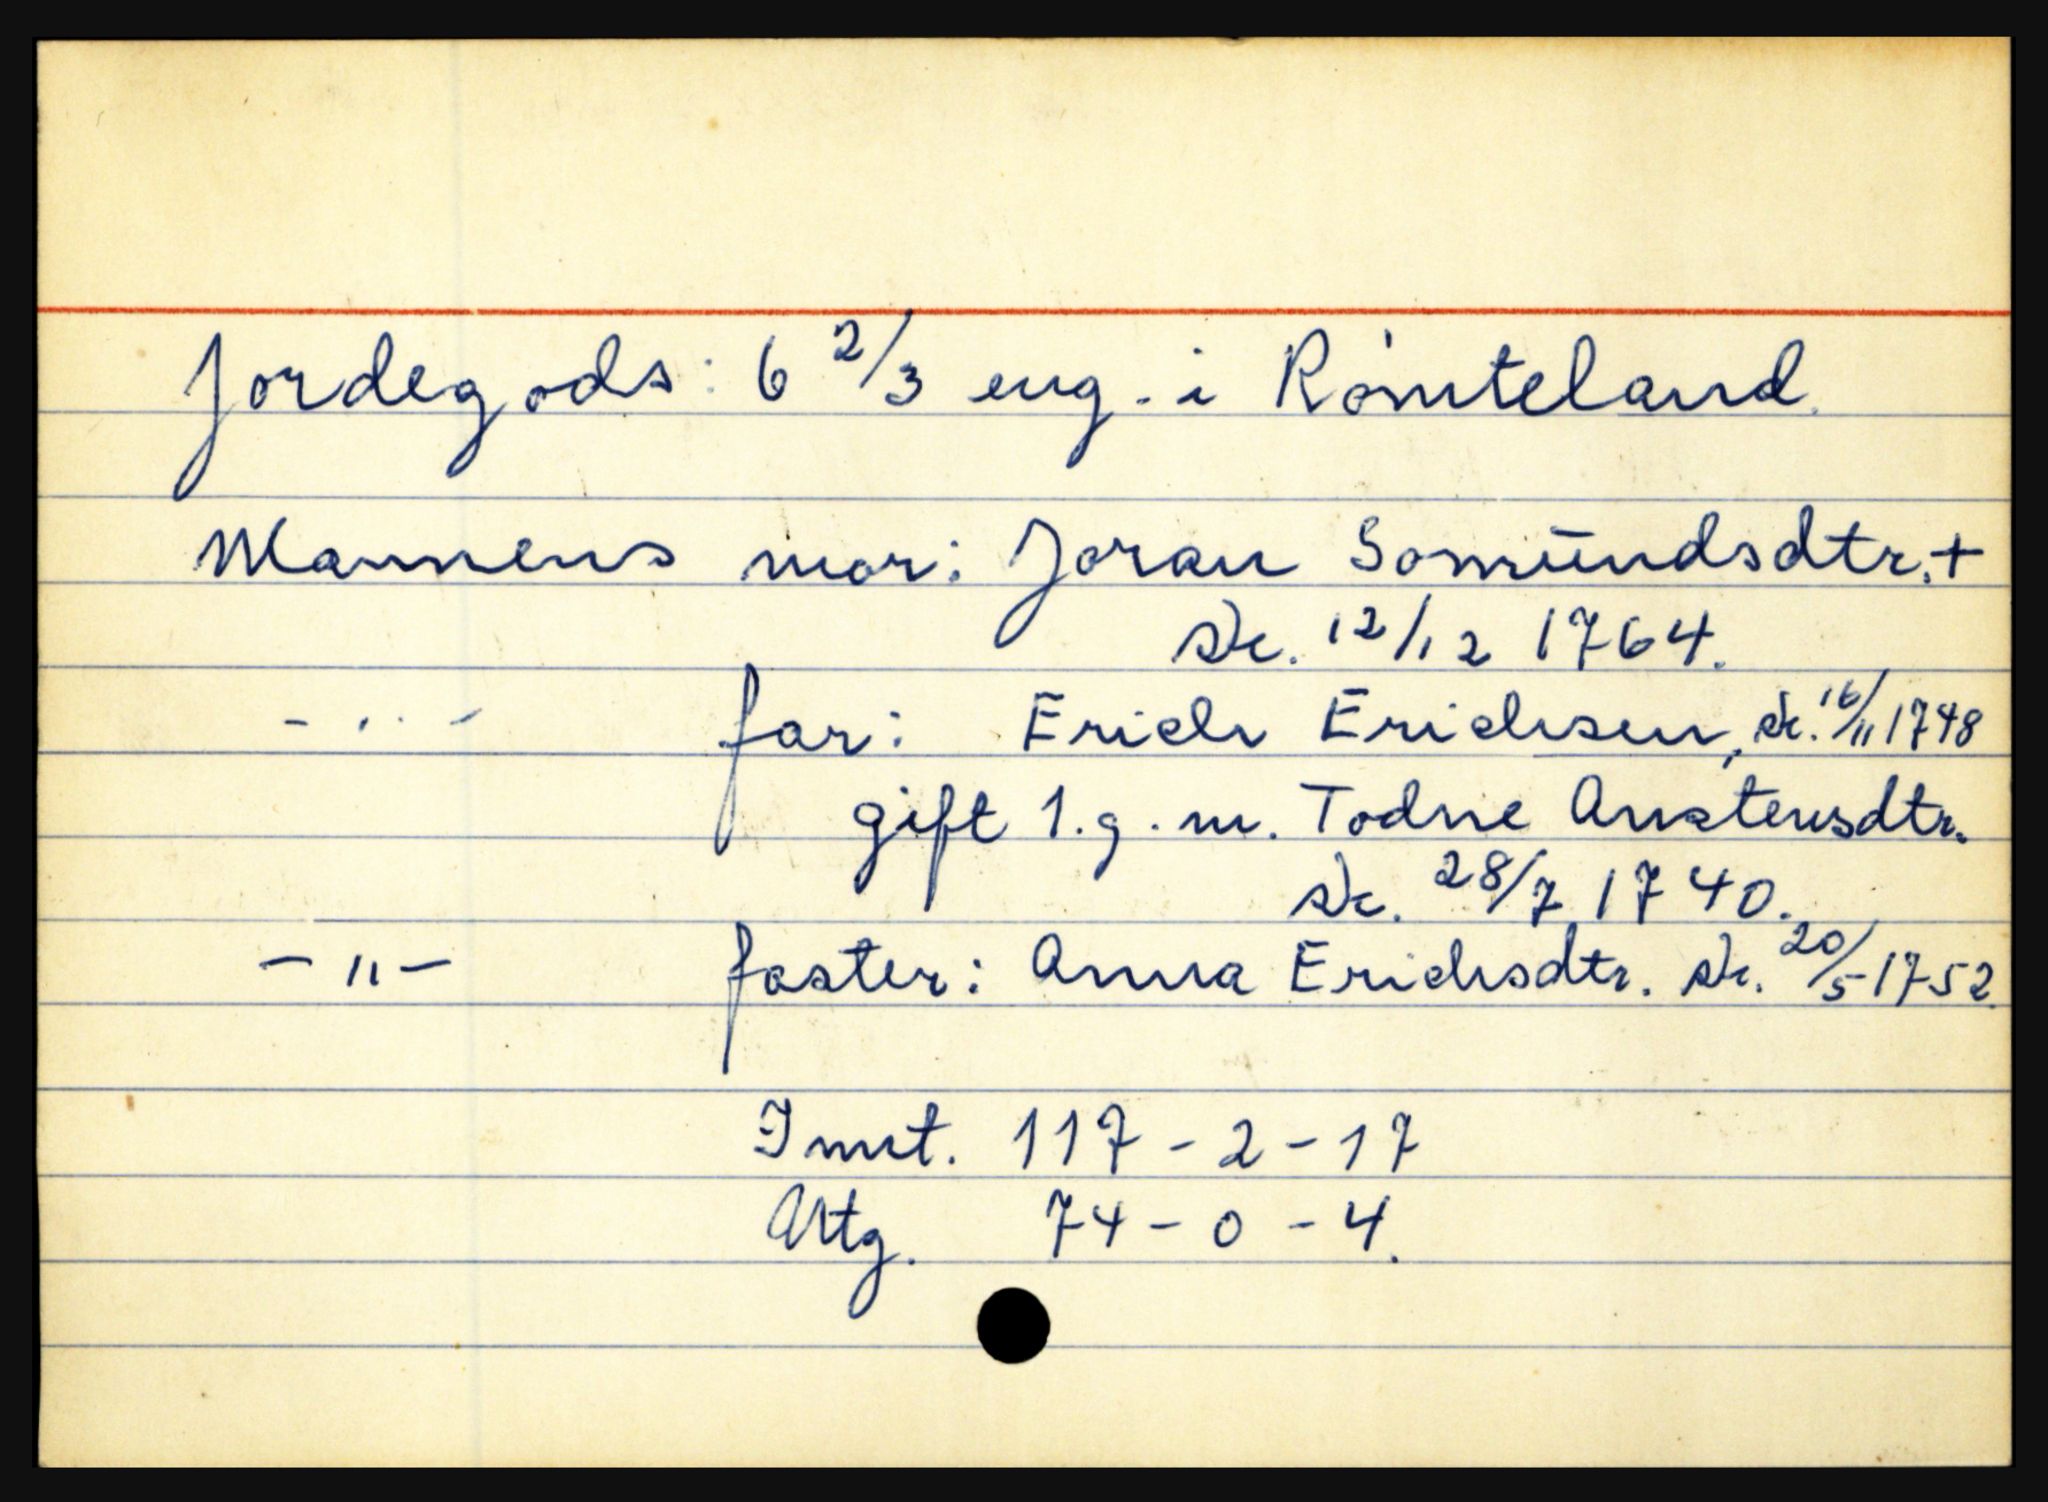 Jordegods: 6 2/3 eng. i Rømteland.
Mannens mor: Joran Somundsdtr. +
sk. 12/12 1764.
- " - far: Erich Erichsen, sk. 16/11 1748
gift 1. g. m. Todne Anstensdtr.
sk. 28/7 1740.
- " - faster: Anna Erichsdtr. sk. 20/5 1752.
Innt. 117 - 2 - 17
Utg. 74 - 0 - 4.